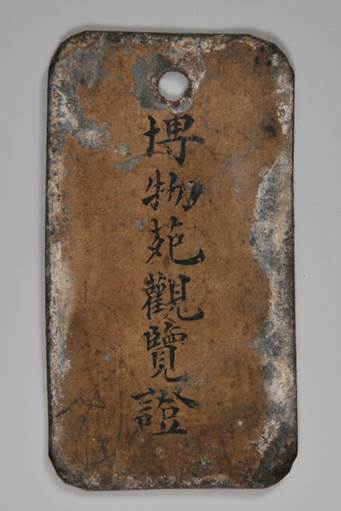 博物苑觀覽證